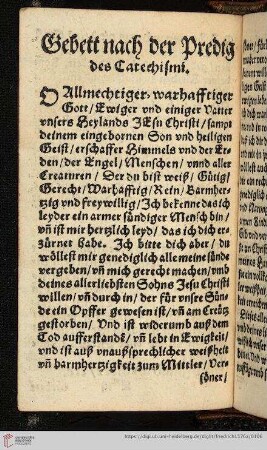 Gebett nach der Predig
des Catechismi.
O Allmechtiger/warhafftiger
Gott/Ewiger vnd einiger Vatter
vnsers Heylands JEsu Christi/sampt
deinem eingebornen Son vnd heiligen
Geist/erschaffer Himmels vnd der Er-
den/der Engel/Menschen/vnnd aller
Creaturen/Der du bist weiß/Gütig/
Gerecht/Warhafftig/Rein/Barmher-
tzig vnd freywillig/Jch bekenne das ich
leyder ein armer sündiger Mensch bin/
vñ ist mir hertzlich leyd/das ich dich er-
zürnet habe. Jch bitte dich aber/du
wöllest mir genediglich alle meine sünde
vergeben/vñ mich gerecht machen/vmb
deines allerliebsten Sohns Jesu Christi
willen/vñ durch in/der für vnser Sün-
de ein Opffer gewesen ist/vñ am Creütz
gestorben/Vnd ist widerumb auß dem
Tod aufferstandẽ/vñ lebt in Ewigkeit/
vnd ist auß vnaußsprechlicher weißheit
vñ barmhertzigkeit zum Mitler/Ver-
söner/